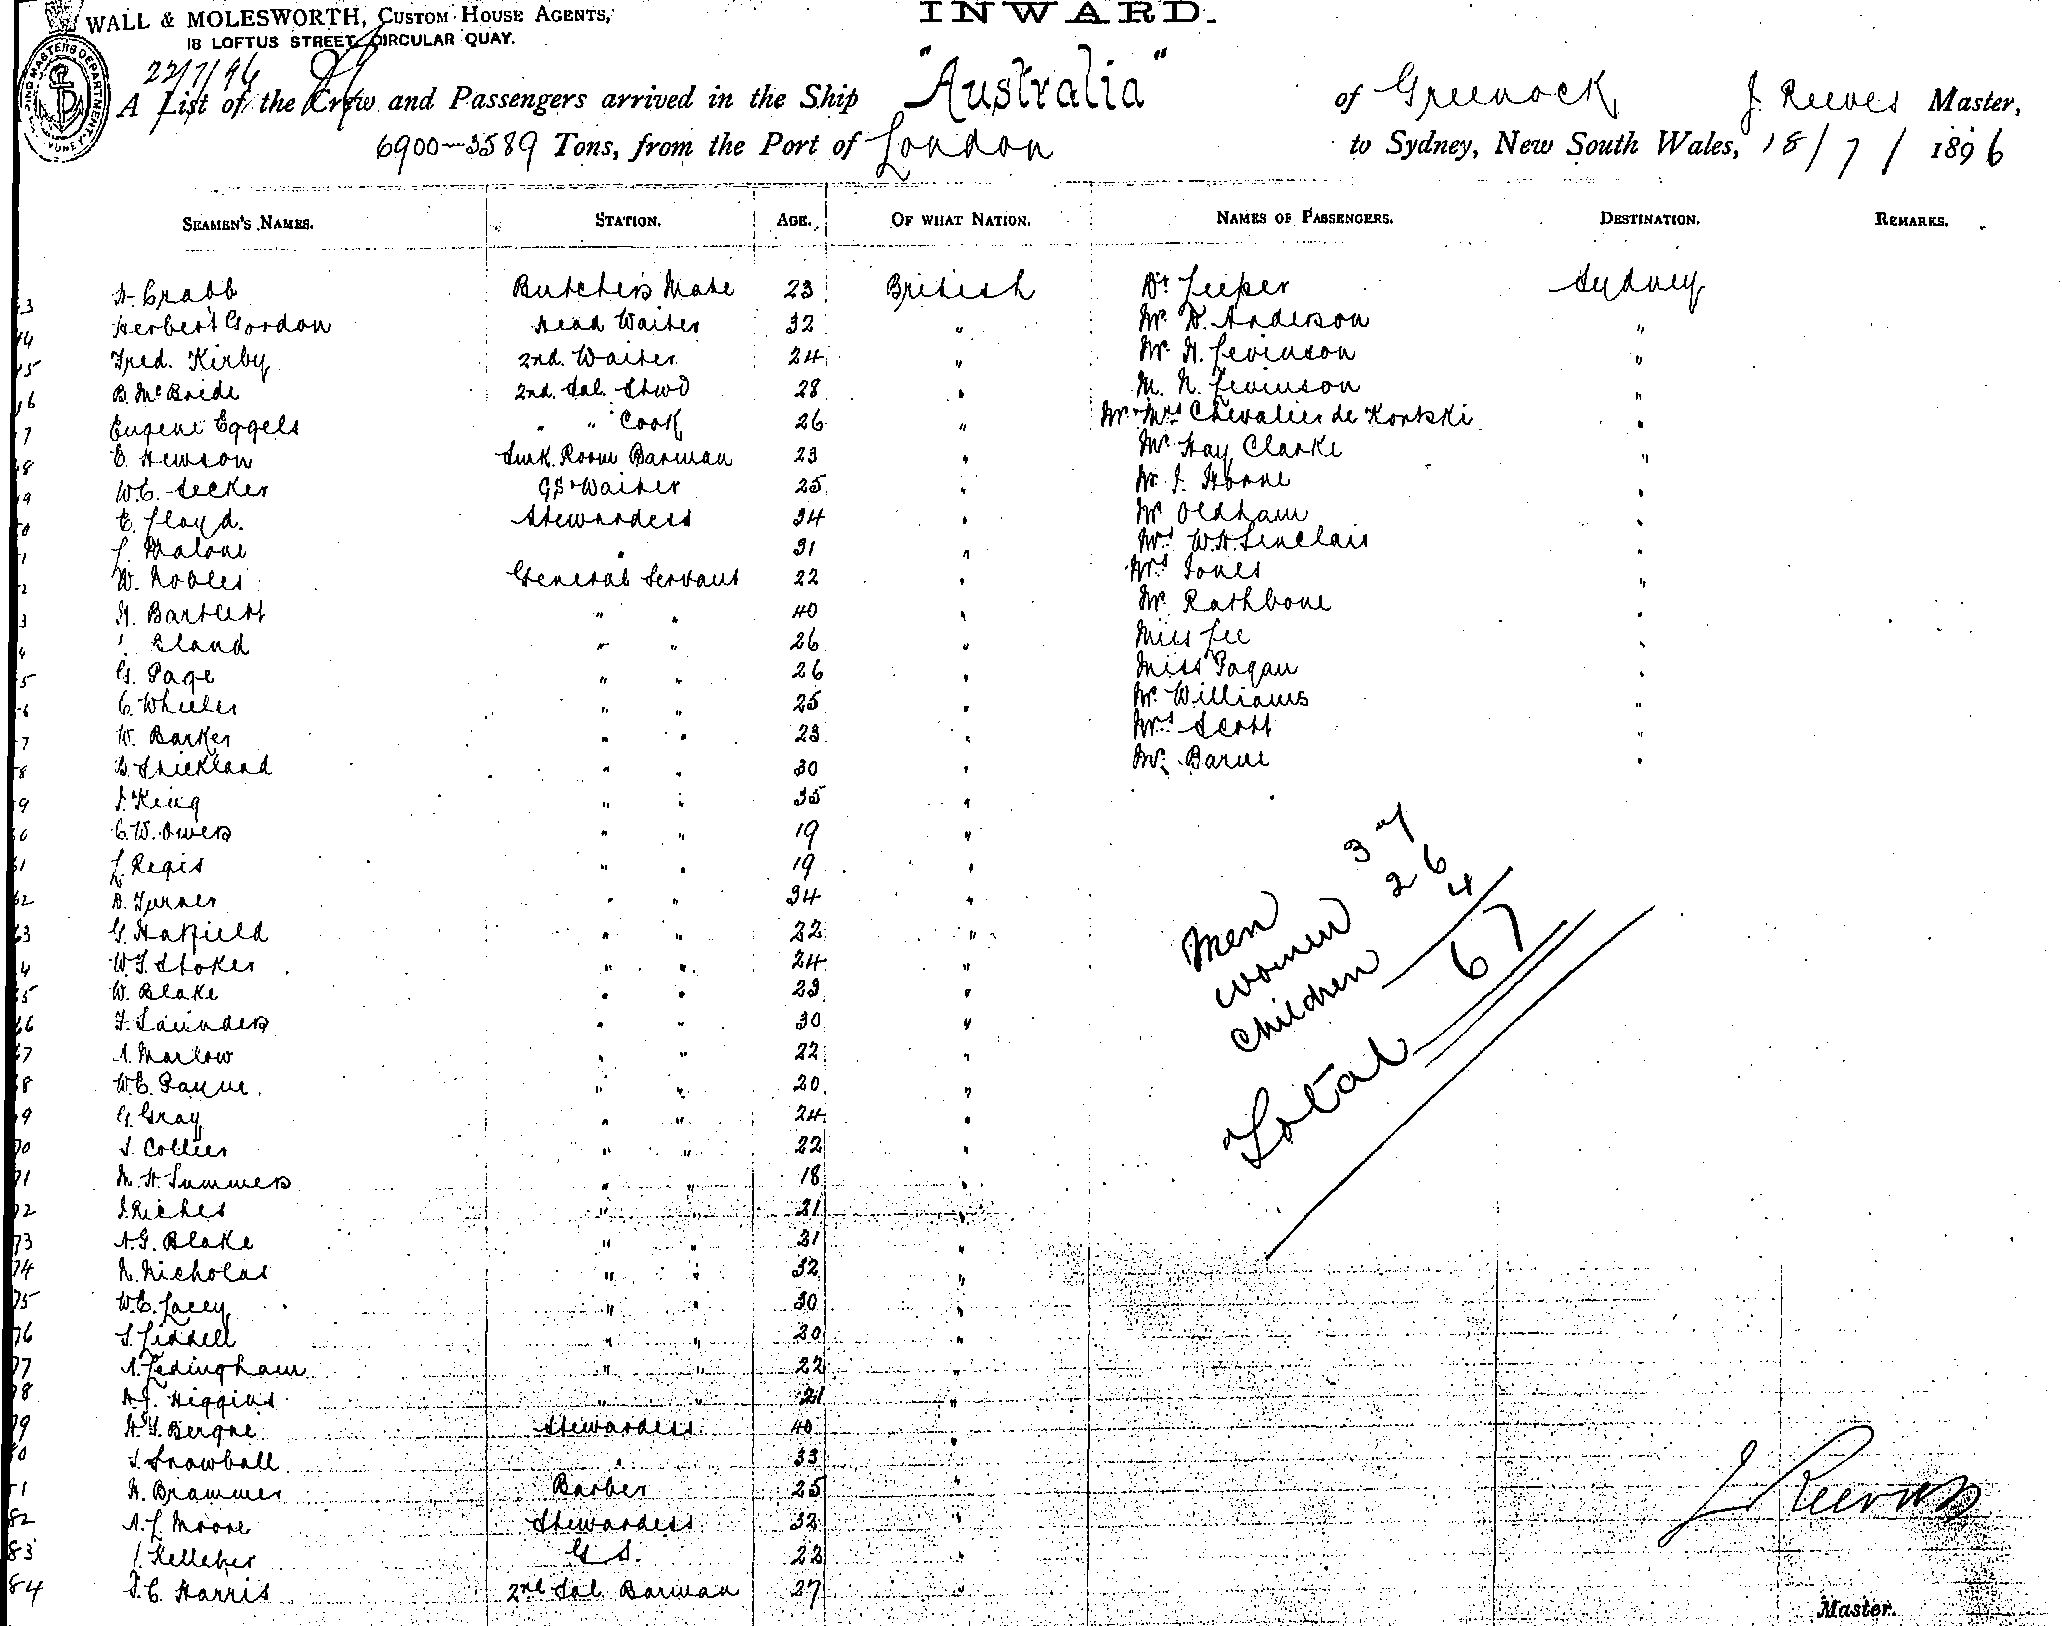 WALL & MOLESWORTH, CUSTOM HOUSE AGENTS,
INWARD.
18 LOFTUS STREET, CIRCULAR QUAY.
22/7/96
A List of the Crew and Passengers arrived in the Ship "Australia" of Greenock J. Reeves Master,
6900-3589 Tons, from the Port of London to Sydney, New South Wales, 18/7/1896
SEAMEN'S NAMES. STATION. AGE. OF WHAT NATION. NAMES OF PASSENGERS. DESTINATION. REMARKS.
A. Crabb Butcher's Mate 23 British Dr. Leeper Sydney
Herbert Gordon Head Waiter 32 " Mr. D. Anderson "
Fred. Kirby 2nd. Waiter 24 " Mr. H. Levinson "
B. McBride 2nd. Sal. Stwd 28 " M. N. Levinson "
Eugene Eggels " " Cook 26 " Mr & Mrs Chevalier de Kontski "
E. Hewson Smk. Room Barman 23 " Mr Hay Clarke "
W.C. Secker GS & Waiter 25 " Mr. J. Horne "
E. Lloyd. Stewardess 34 " Mr Oldham "
L. Malone " 31 " Mrs W.H. Sinclair "
W. Nobles General Servant 22 " Mrs Jones "
H. Bartlett " " 40 " Mr. Rathbone "
Eland " " 26 " Miss Lee "
G. Page " " 26 " Miss Pagan "
C. Wheeler " " 25 " Mr. Williams "
W. Barker " " 23 " Mrs Scott "
G. Strickland " " 30 " Mr. Barne "
J. King " " 35 "
C.W. Owers " " 19 "
L. Regis " " 19 "
A. Turner " " 34 "
G. Hatfield " " 22 "
W.J. Stoker " " 24 "
W. Blake " " 23 "
F. Saunders " " 30 "
A. Marlow " " 22 "
W.E. Payne " " 20 "
G. Gray " " 24 "
S. Collier " " 22 "
M. H. Summers " " 18 "
J. Riches " " 21 "
A.G. Blake " " 21 "
N. Nicholas " " 32 "
W.E. Lacey " " 30 "
S. Liddell " " 20 "
A. Ledingham " " 22 "
A.J. Higgins " " 21 "
H.J. Bergne Stewardess 40 "
S. Snowball " 33 "
H. Brammer Barber 25 "
A. L. Moore Stewardess 32 "
J. Kelleher G S. 22 "
J.C. Harris 2nd Sal Barman 27 "
Men 37
Women 26
Children 4
Total 67
J Reeves
Master.